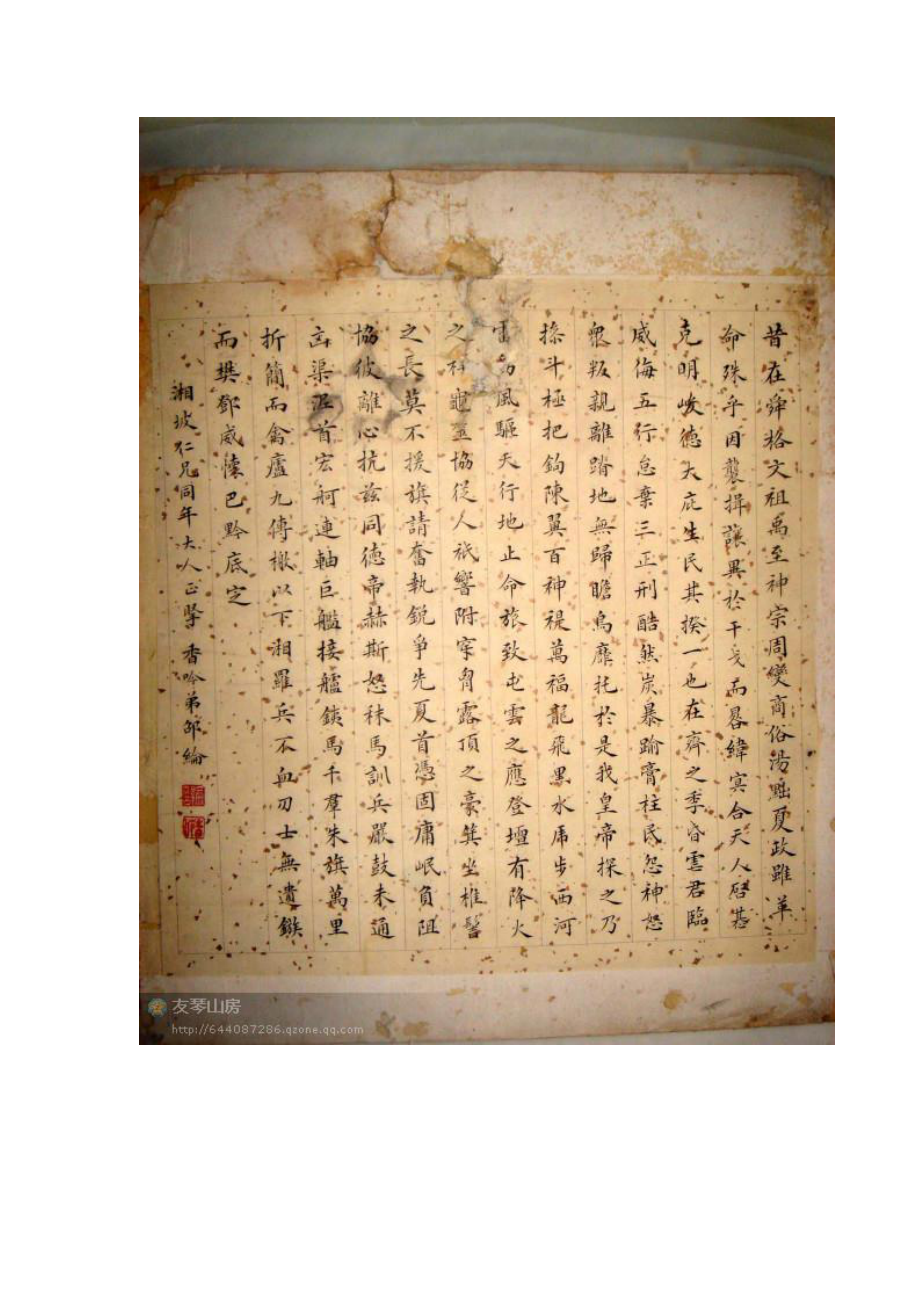 昔在舜格文祖禹至神宗周變商俗湯黜夏政雖革
命殊乎因襲揖讓異於干戈而晷緯冥合天人啓惎
克明峻德大庇生民其揆一也在齊之季昏虐君臨
威侮五行怠棄三正刑酷然炭暴踰膏柱民怨神怒
衆叛親離踏地無歸瞻烏靡托於是我皇帝探之乃
操斗極把鉤陳翼百神禔萬福龍飛黑水虎步西河
雷動風驅天行地止命旅致屯雲之應登壇有降火
之祥龜筮協從人祇響附穿胷露頂之豪箕坐椎髻
之長莫不援旗請奮執銳爭先夏首憑固庸岷負阻
協彼離心抗茲同德帝赫斯怒秣馬訓兵嚴鼓未通
凶渠泥首宏舸連軸巨艦接艫鐵馬千羣朱旗萬里
折簡而禽廬九傳檄以下湘羅兵不血刃士無遺鏃
而樊鄧威懷巴黔底定
湘坡仁兄同年大人正擥 香吟弟邹綸
友琴山房
http://644087286.qzone.qq.com